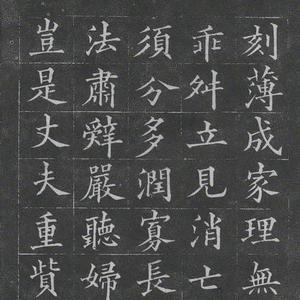 刻薄成家理無
乖舛立見消亡
須分多潤寡長
法肅辭嚴聽婦
豈是丈夫重貲